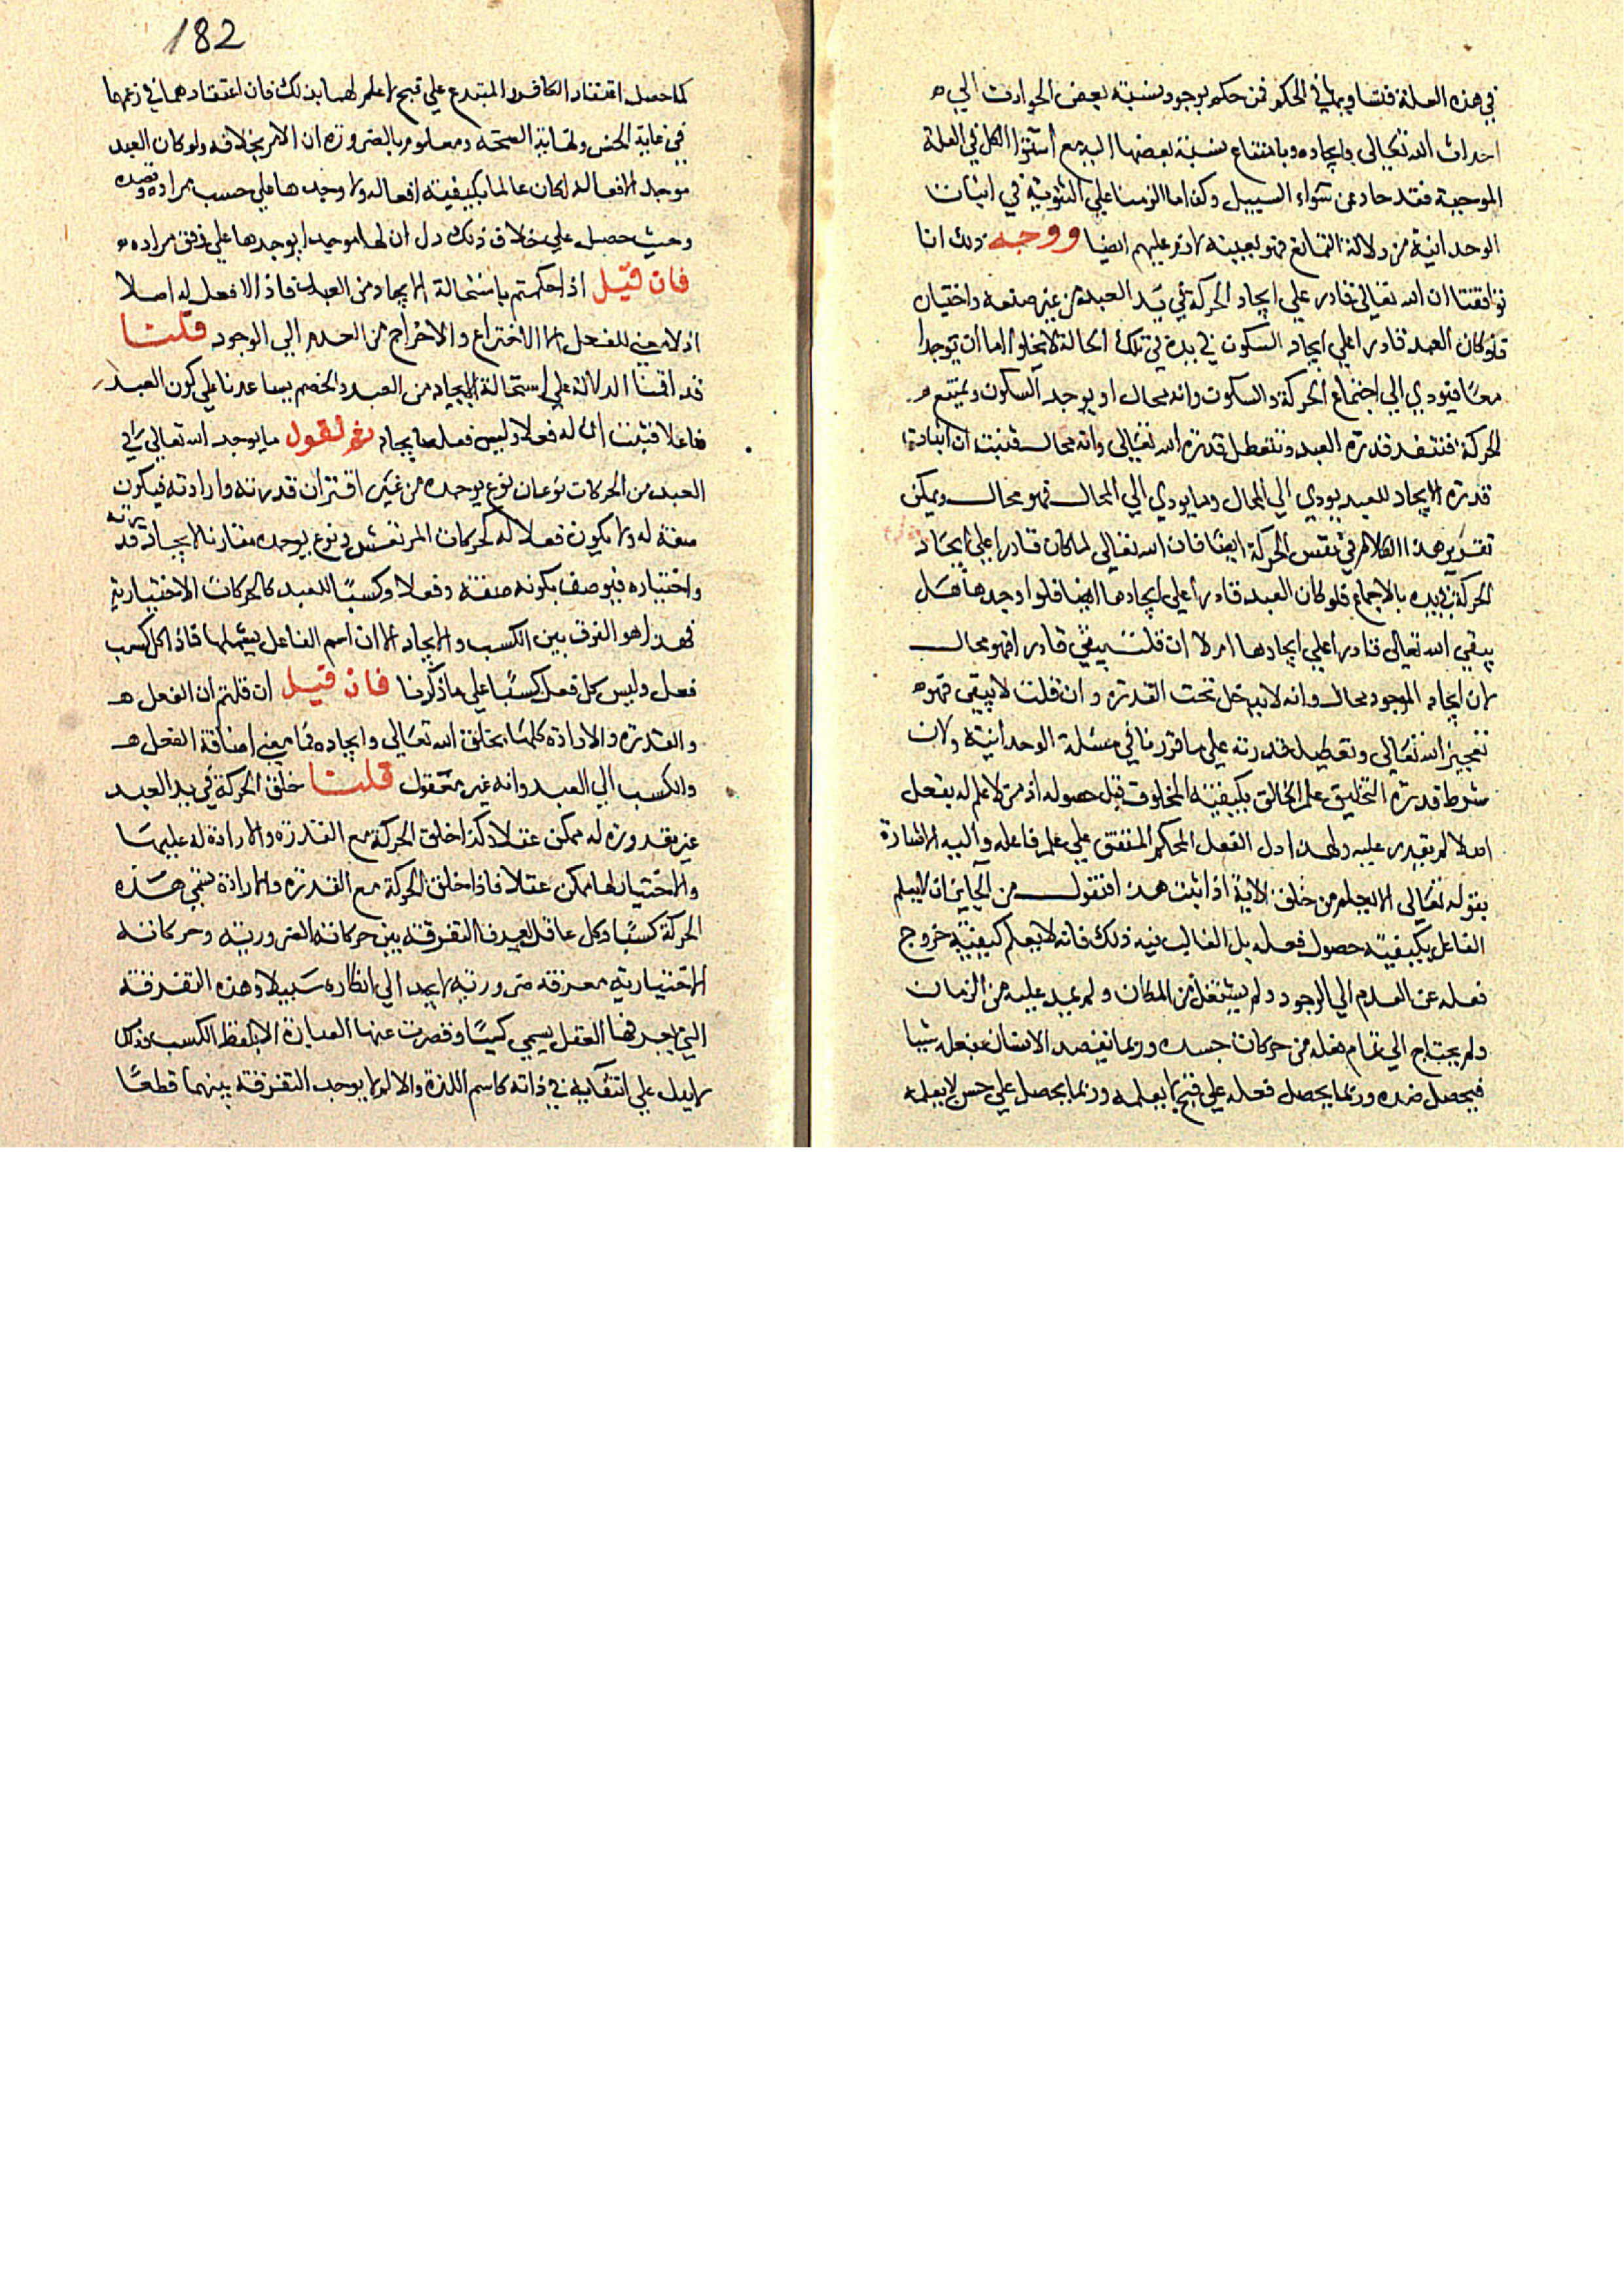 في هذه العلة فتساويها في الحكم فمن حكم بوجود نسبة بعض الحوادث الي
احداث الله تعالى وايجاده وبامتناع نسبة بعضها اليه مع استواء الكل في العلة
الموجبة فقد حاد عن سواء السبيل وكذا ما الزمنا علي الثنوية في اثبات
الوحدانية من دلالة التمانع فهو بعينه لازم عليهم ايضا ووجه ذلك انا
توافقنا ان الله تعالى قادر علي ايجاد الحركة في يد العبد من غير صنعه واختيان
فلو كان العبد قادرا علي ايجاد السكون في يده في تلك الحالة لا يخلو اما ان يوجدا
معًا فيودي الي اجتماع الحركة والسكون وانه محال او يوجد السكون ويمتنع
الحركة فتنفذ قدرة العبد وتتعطل قدرة الله تعالى وانه محال فثبت ان اثبات
قدرة الايجاد للعبد يودي الي المحال وما يودي الي المحال فهو محال ويمكن
تقرير هذا الكلام في نفس الحركة ايضا فان الله تعالى لما كان قادرا علي ايجاد
الحركة في يده بالاجماع فلو كان العبد قادرا علي ايجادها ايضا فلو اوجدها هل
يبقي الله تعالى قادرا علي ايجادها ام لا ان قلت يبقي قادرا فهو محال
لان ايجاد الموجود محال وانه لا يدخل تحت القدرة وان قلت لا يبقى فهو
تعجيز الله تعالى وتعطيل قدرته علي ما قررنا في مسئلة الوحدانية ولان
شرط قدرة التخليق علم الخالق بكيفية المخلوق قبل حصوله اذ من لا علم له بفعل
اصلا لم يقدر عليه ولهذا دل الفعل المحكم المتقن علي علم فاعله واليه الاشارة
بقوله تعالى الا يعلم من خلق الاية اذا ثبت هذا فنقول من الجايز ان لا يعلم
الفاعل بكيفية حصول فعله بل الغالب فيه ذلك فانه لا يعلم كيفية خروج
فعله عن العدم الي الوجود ولم يشتغل من المكان ولم يمد عليه من الزمان
ولم يحتاج الي تمام فعله من حركات جسده وربما يقصد الانسان بفعل شيا
فيحصل ضده وربما يحصل فعله علي قبح لا يعلمه وربما يحصل علي حسن لا يعلمه
182
كما حصل اعتقاد الكافر والمبتدع علي قبح لا علم لهما بذلك فان اعتقادهما في زعمهما
في غاية الحسن ونهاية الصحة ومعلوم بالضرورة ان الامر بخلافه ولو كان العبد
موجد الافعاله لكان عالما بكيفية افعاله ولا وجدها علي حسب مراده وقصده
وحيث حصل علي خلاف ذلك دل ان لها موجدا يوجدها علي وفق مراده
فان قيل اذا حكمتم باستحالة الايجاد من العبد فاذا لا فعل له اصلا
اذ لا معني للفعل الا الاختراع والاخراج من العدم الي الوجود قلنا
قد اقمنا الدلالة علي استحالة الايجاد من العبد والخصم يساعدنا علي كون العبد
فاعلا فثبت ان له فعلا وليس فعله بايجاد ثم نقول ما يوجد الله تعالى في
العبد من الحركات نوعان نوع يوجده من غير اقتران قدرته وارادته فيكون
صفة له ولا يكون فعلا له كحركات المرتعش ونوع يوجده مقارنا لايجاد قدرته
واختياره فيوصف بكونه صفة وفعلا وكسبًا للعبد كالحركات الاختيارية
فهذا هو الفرق بين الكسب والايجاد الا ان اسم الفاعل يشملها فاذا كل كسب
فعل وليس كل فعل كسبًا علي ما ذكرنا فان قيل ان قلتم ان الفعل
والقدرة والارادة كلها بخلق الله تعالى وايجاده فما معني اضافة الفعل
والكسب الي العبد وانه غير معقول قلنا خلق الحركة في يد العبد
غير مقدورة له ممكن عقلا وكذا خلق الحركة مع القدرة والارادة له عليها
والاختيار لها ممكن عقلا فاذا خلق الحركة مع القدرة والارادة نسمي هذه
الحركة كسبًا وكل عاقل يعرف التفرقة بين حركاته الضرورية وحركاته
الاختيارية معرفة ضرورية لا يجد الي انكاره سبيلا وهذه التفرقة
التي يجدها العقل يسمي كسبًا وقصرت عنها العبارة الا بلفظ الكسب وذلك
لا يدل علي انتفايه في ذاته كاسم اللذة والالم لا يوجب التفرقة بينهما قطعًا